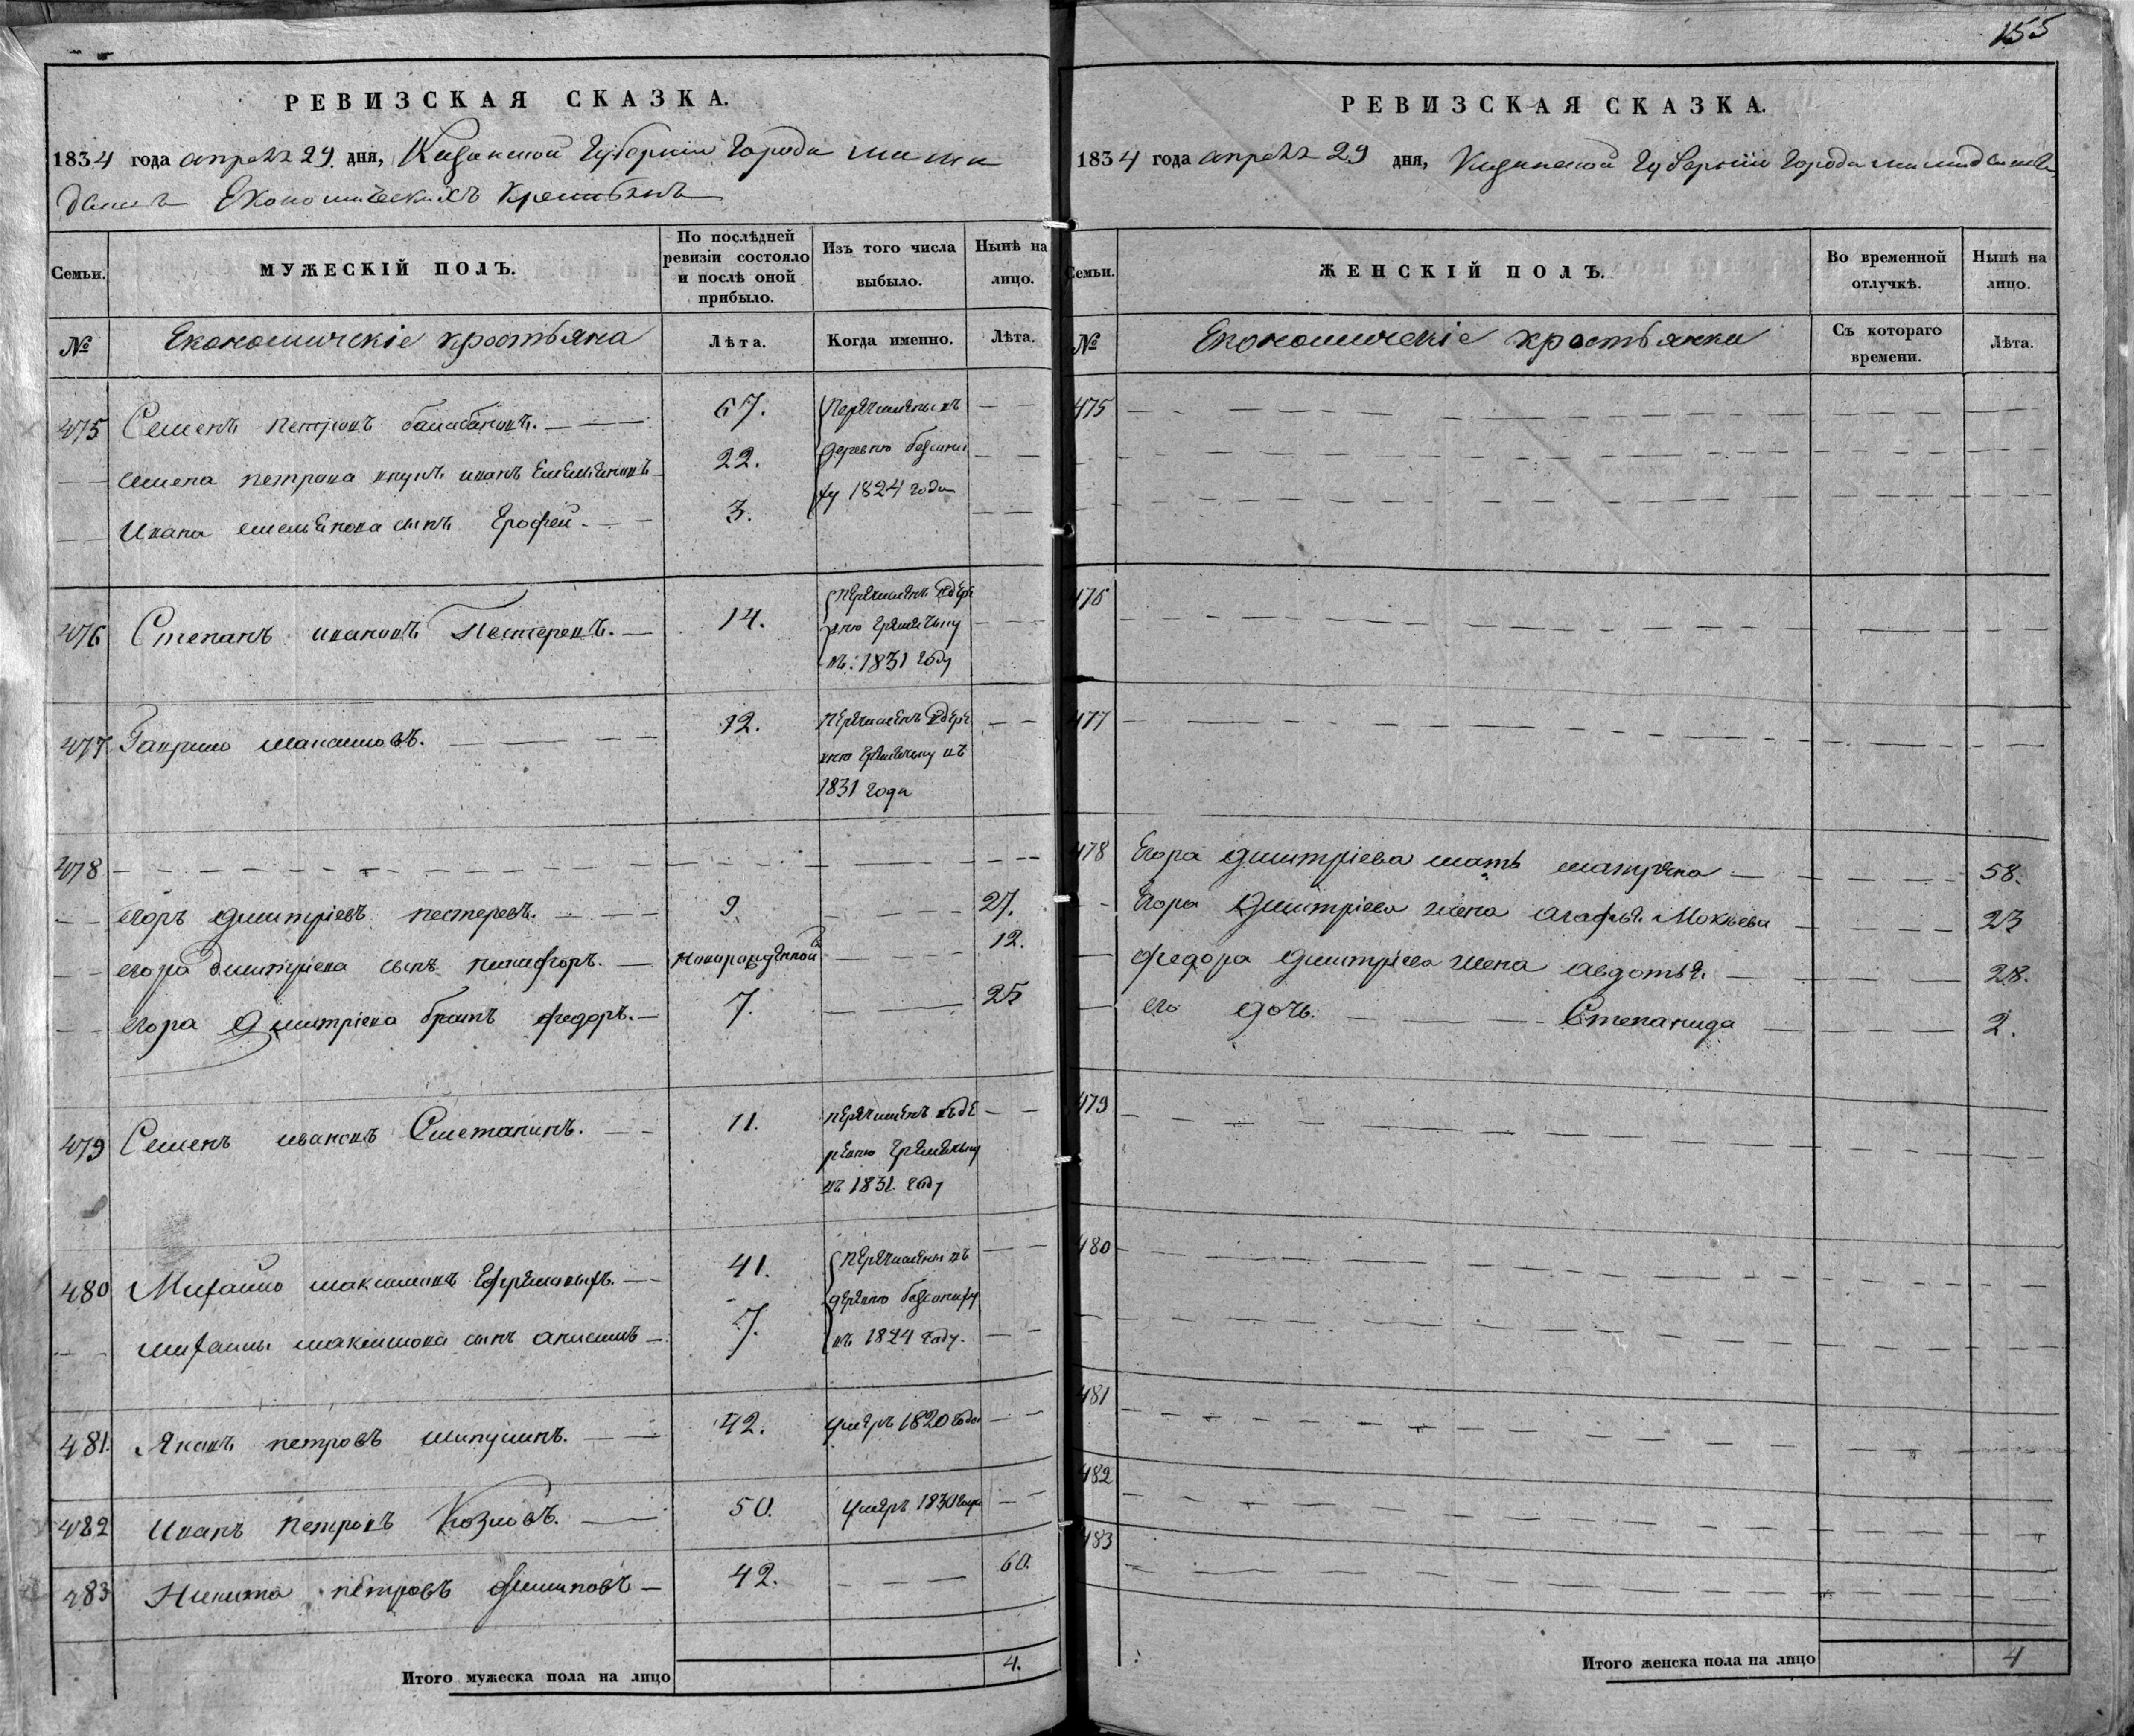 155
РЕВИЗСКАЯ СКАЗКА.
1834 года апреля 29 дня, Казанской Губернии города мама
дыша Економическихъ крестьянъ
Семьи. МУЖЕСКІЙ ПОЛЪ. По послѣдней ревизіи состояло и послѣ оной прибыло. Изъ того числа выбыло. Нынѣ на лицо.
№ Економическіе крестьяна Лѣта. Когда именно. Лѣта.
475 Семенъ петровъ балабановъ. 67. Перечислены въ
Семена петрова внукъ иванъ Емельяновъ 22. деревню
Ивана емельянова сынъ Ерофей. 3. 1824 года
476 Степанъ ивановъ Пестеревъ. 14. перечисленъ вдере
вню
въ 1831 году
477 Гаврило максимовъ. 12. перечисленъ вдере
вню въ
1831 года
478
егоръ дмитріевъ пестеревъ. 9. 27.
егора дмитріева сынъ никифоръ. новорожденной 12.
егора дмитріева братъ федоръ. 7. 25
479 Семенъ ивановъ Сметанинъ. 11. перечисленъ вде
ревню
въ 1831 году
480 Михайло максимовъ 41. перечислены въ
деревню
михайлы максимова сынъ анисимъ 7. въ 1824 году.
481. Яковъ петровъ 42. умеръ 1820 года
482 Иванъ петровъ Козловъ. 50. умеръ года
483 Никита петровъ филиповъ 42. 60.
Итого мужеска пола на лицо 4.
РЕВИЗСКАЯ СКАЗКА.
1834 года апреля 29 дня, Казанской Губерніи города
Семьи. ЖЕНСКІЙ ПОЛЪ. Во временной отлучкѣ. Нынѣ на лицо.
№ Економическіе крестьянки Съ котораго времени. Лѣта.
475
476
477
478 Егора дмитріева мать матрена 58.
Егора Дмитріева жена агафья Мокѣева 23
федора дмитріева жена авдотья. 28.
его дочь. Степанида 2.
479
480
481
482
483
Итого женска пола на лицо 4